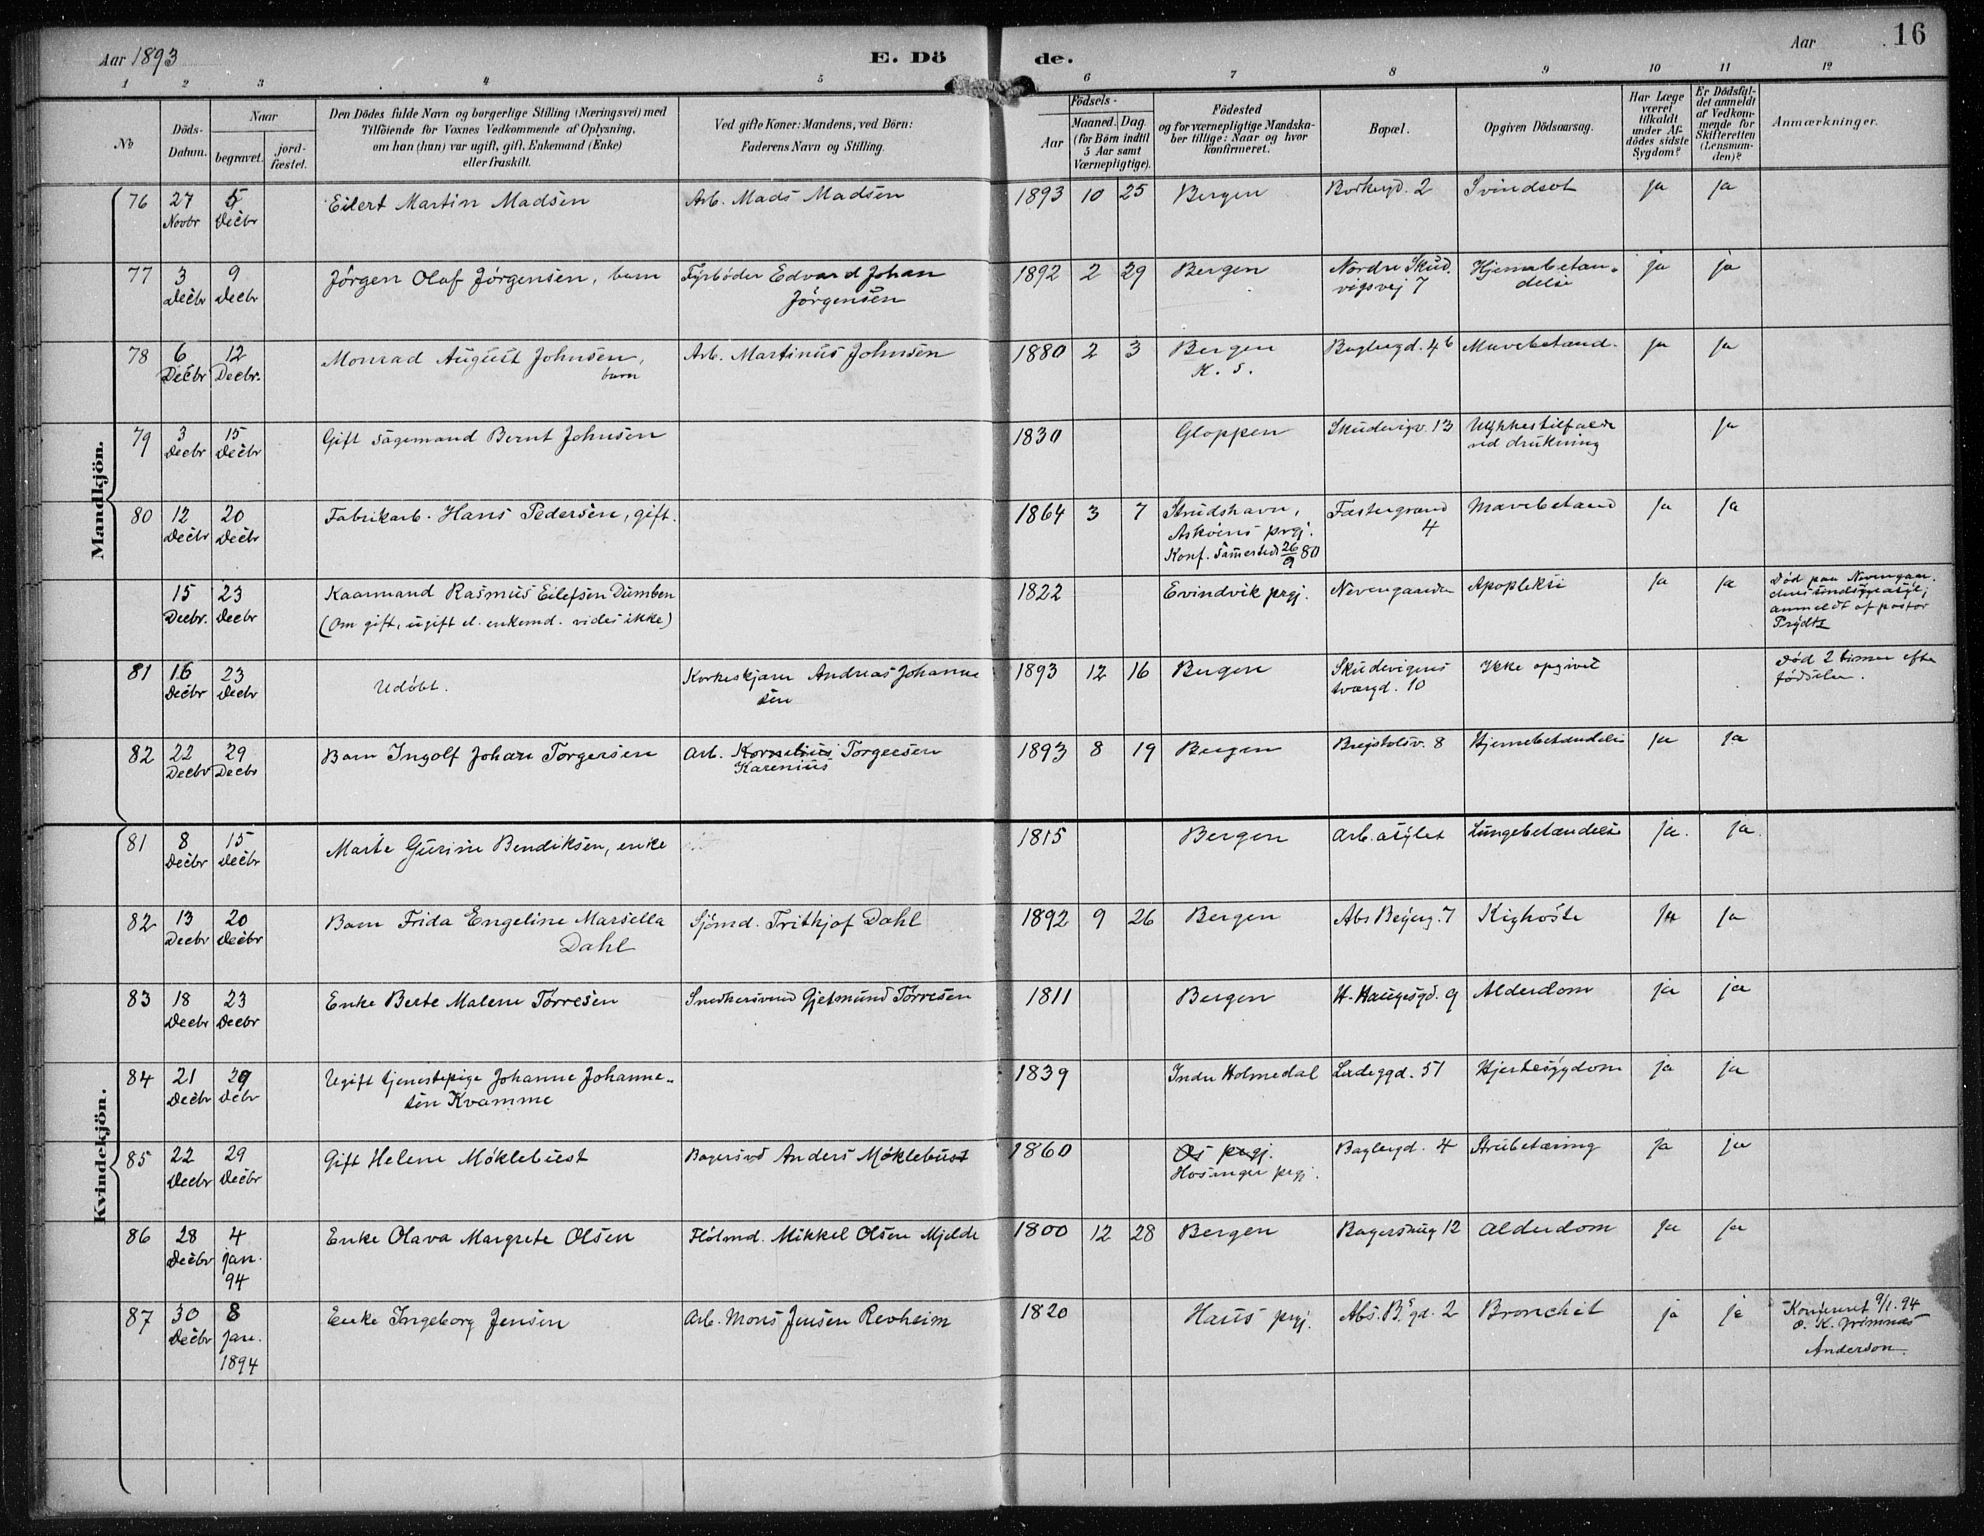 Aar 1893
E. Dö
de.
Aar
16
1 2 3 4 5 6 7 8 9 10 11 12
№
Döds-Datum.
Naar
begravet.
jord-fæstet.
Den Dödes fulde Navn og borgerlige Stilling (Næringsvei) med
Tilföiende for Voxnes Vedkommende af Oplysning,
om han (hun) var ugift, gift, Enkemand (Enke)
eller fraskilt.
Ved gifte Koner: Mandens, ved Börn:
Faderens Navn og Stilling.
Födsels-
Aar
Maaned. Dag.
(for Börn indtil
5 Aar samt
Værnepligtige).
Födested
og for værnepligtige Mandska-
ber tillige: Naar og hvor
konfirmeret.
Bopæl.
Opgiven Dödsaarsag.
Har Læge
været
tilkaldt
under Af-
dödes sidste
Sygdom?
Er Dödsfal-
det anmeldt
af Vedkom-
mende for
Skifteretten
(Lensman-
den)?
Anmærkninger.
Mandkjön.
76 27 Novbr 5 Decbr Eilert Martin Madsen Arb. Mads Madsen 1893 10 25 Bergen 2 Svindsot ja ja
77 3 Decbr 9 Decbr Jörgen Olaf Jörgensen, barn Fyrböder Edvard Johan
Jörgensen 1892 2 29 Bergen Nordre Skud.
vigsvej 7 Hjernebetæn-
delse ja ja
78 6 Decbr 12 Decbr. Monrad August Johnsen,
barn Arb. Martinus Johnsen 1880 2 3 Bergen
K. S. Baglergd. 46 Mavebetænd. ja ja
79 3 Decbr 15 Decbr Gift Sagemand Bernt Johnsen 1830 Gloppen Skudevigv. 13 Ulykkestilfælde
ved drukning ja
80 12 Decbr 20 Decbr Fabrikarb. Hans Pedersen, gift. 1864 3 7 Strudshavn,
Asköens prgj.
Konf. sammesteds 26/9 80 Fæstergrænd
4 Mavebetænd ja ja
15 Decbr. 23 Decbr Kaarmand Rasmus Eilefsen Dumben
(Om gift, ugift el. enkemd. vides ikke) 1822 Evindvik prgj. Nevengaarden Apopleksi ja ja Död paa Nevengaar-
dens sindssygeasyl;
anmeldt af pastor
Prydtz
81 16 Decbr 23 Decbr Udöbt. Korkeskjærer Andreas Johanne
sen 1893 12 16 Bergen Skudevigens
tværgd. 10 Ikke opgivet Död 2 timer efter
födselen.
82 22 Decbr 29 Decbr Barn Ingolf Johan Torgersen Arb. Kornelius Torgersen
Karenius 1893 8 19 Bergen Brejstolsv. 8 Hjernebetændelse ja ja
Kvindekjön.
81 8 Decbr 15 Decbr Marte Gurine Bendiksen, enke 1815 Bergen Arb. asylet Lungebetændelse ja. ja.
82 13 Decbr 20 Decbr Barn Frida Engeline Marsella
Dahl Sjömd. Frithjof Dahl 1892 9 26 Bergen Abs Beyerg. 7 Kighoste ja ja
83 18 Decbr 23 Decbr Enke Berte Malene Törresen Snedkersvend Gjetmund Törresen 1811 Bergen H. Haugesgd. 9 Alderdom ja ja
84 21 Decbr 29 Debr Ugift tjenestepige Johanne Johanne-
sen Kvamme 1839 Indre Holmedal Ladeggd. 51 Hjertesygdom ja ja
85 22 Decbr 29 Decbr Gift Helene Möklebust Bagersvd Anders Möklebust 1860 Os prgj.
Hosanger prgj. Baglergd. 4 Strubetæring ja ja
86 28 Decbr 4 jan. 94 Enke Olava Margrete Olsen Flölmd. Mikkel Olsen Mjelde 1800 12 28 Bergen Bagersmug 12 Alderdom ja ja
87 30 Decbr 8 jan. 1894 Enke Ingeborg Jensen Arb. Mons Jensen Revheim 1820 Haus prgj. Abs. B.sgd. 2 Bronchit ja ja Konfereret 9/1. 94
O. K. Grimnæs
Anderson.